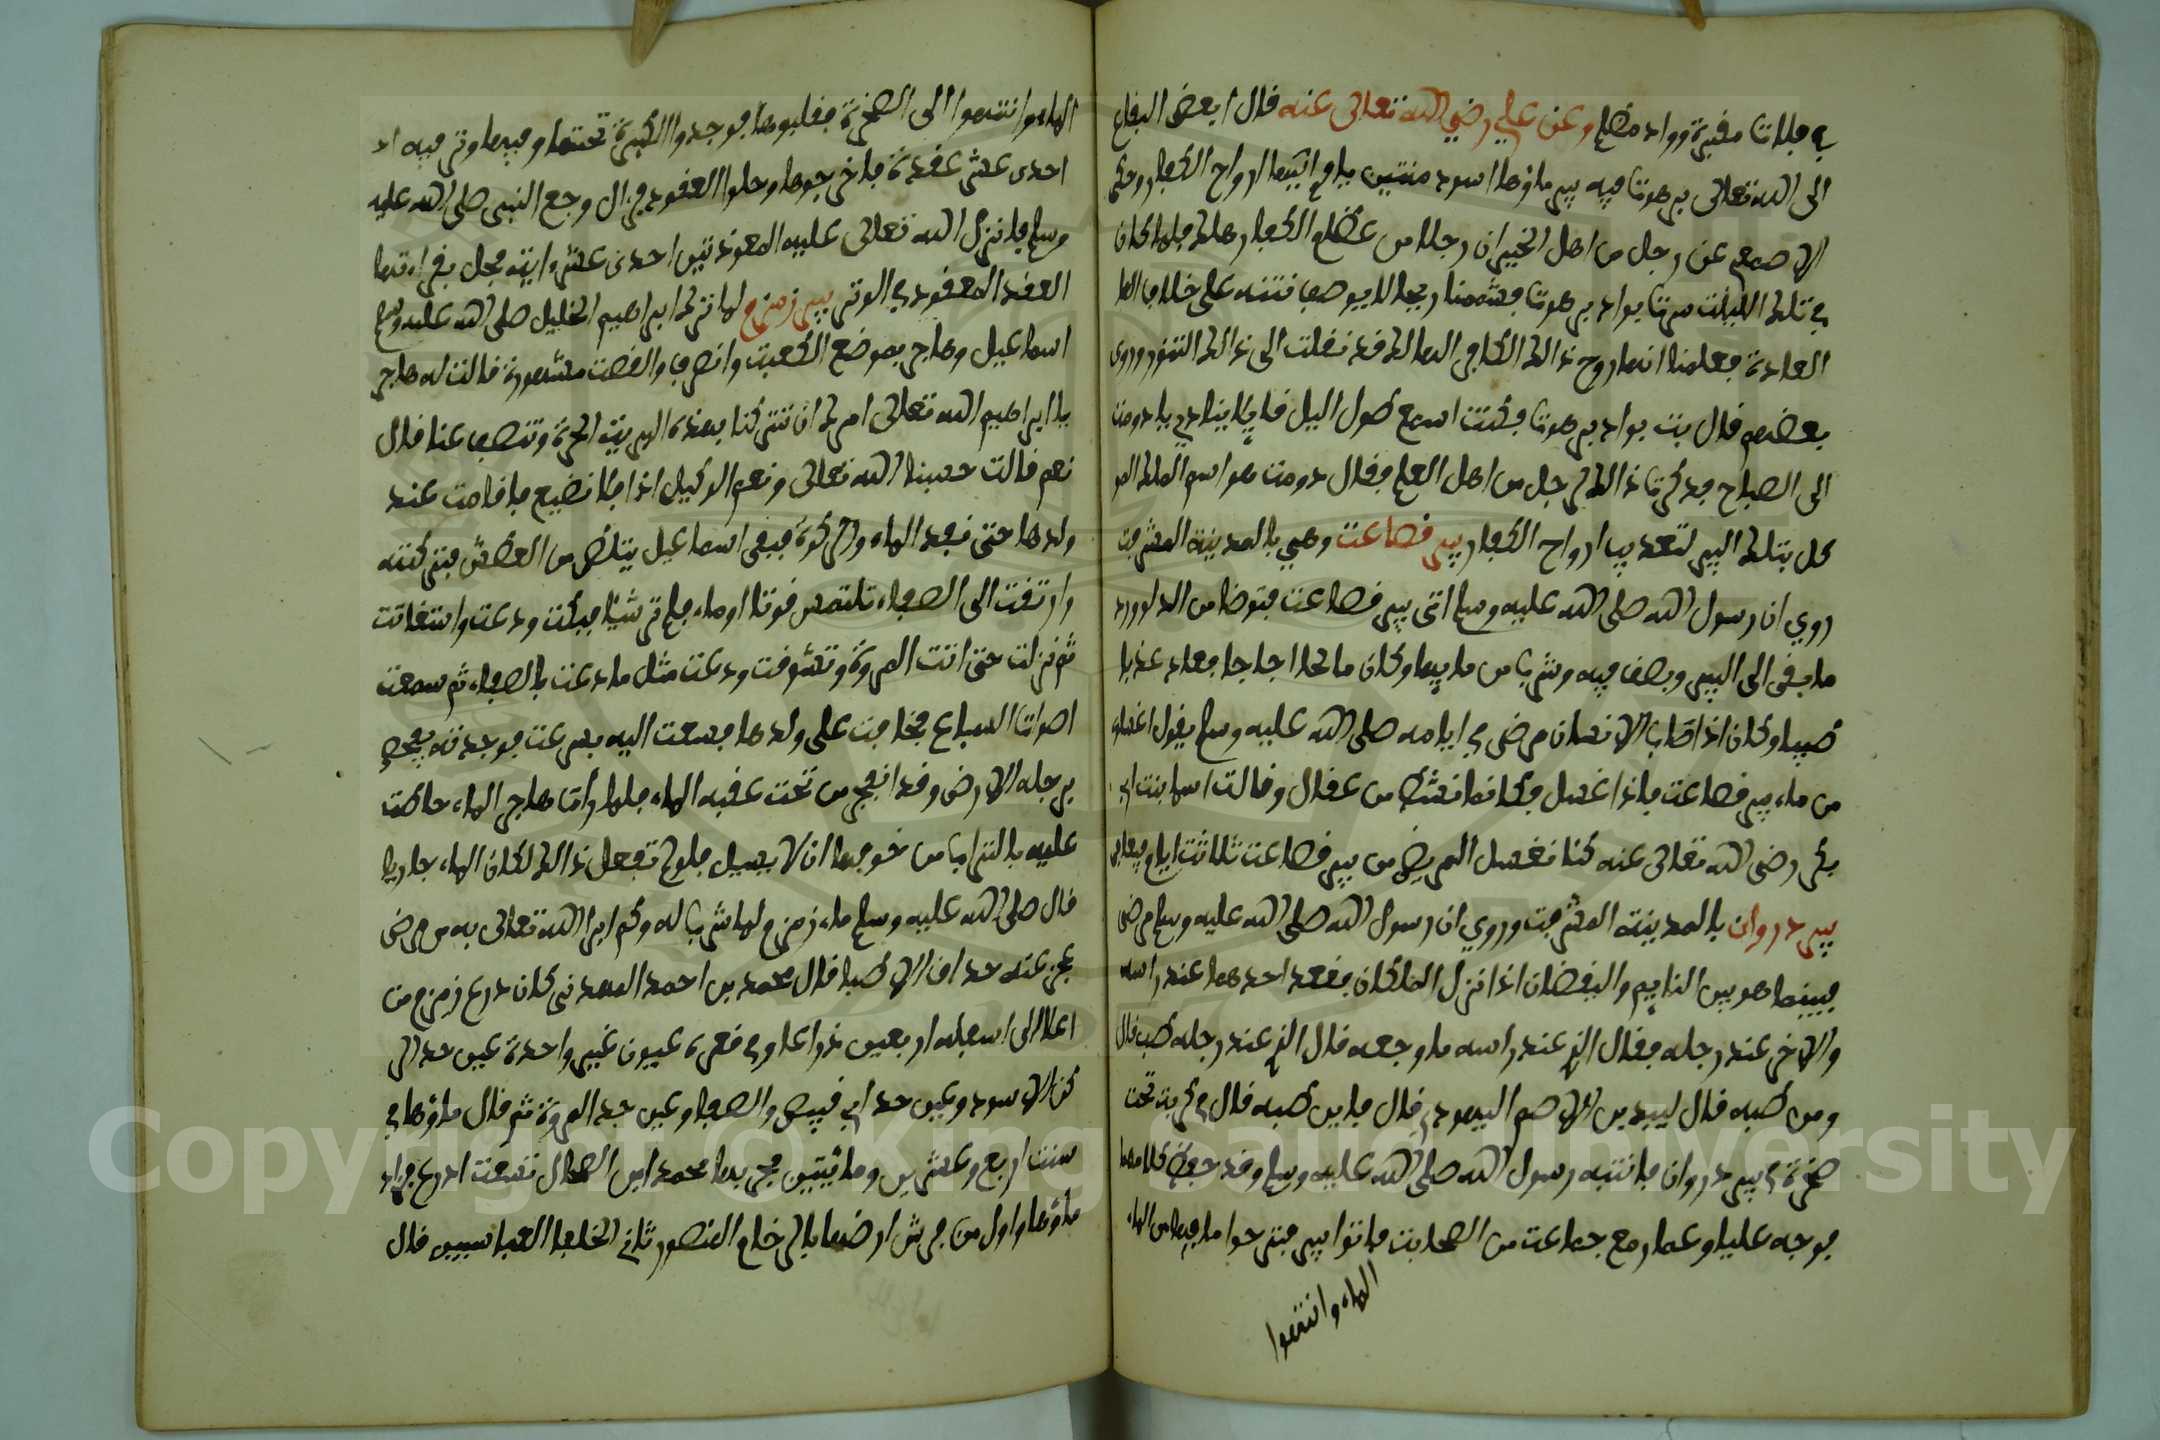 في فلات مقبرة وواد مظلم وعن علي رضي الله تعالى عنه قال ابغض البقاع
الى الله تعالى برهوت فيه بير ماؤها اسود منتين ياوي اليها ارواح الكفار وحكى
الاصمعي عن رجل من اهل الخير ان رجلا من عظماء الكفار هلك فلما كان
في تلك الليلت مرت بواد برهوت فشممنا ريحا لا يوصف نتنه على خلاف العا
العادة فعلمنا انها روح ذالك الكافر الهالك قد نقلت الى ذالك وروى
بعضهم قال بت بواد برهوت فكنت اسمع طول اليل قايلا ينادي يا دومت
الى الصباح فذكرت ذالك لرجل من اهل العلم فقال دومت هو اسم الملك المو
كل بتلك البير لتعذيب ارواح الكفار بير قضاعت وهي بالمدينة المشرفت
روي ان رسول الله صلى الله عليه وسلم اتى بير قضاعت فتوضا من الدلو ورد
ما بقى الى البير وبصق فيه وشرب من مايها وكان مالحا اجاجا فعاد عذبا
طيبا وكان اذا اصاب الانسان مرض في ايامه صلى الله عليه وسلم يقول اغسلوه
من ماء بير قضاعت فاذا غسل فكانما نشط من عقال وقالت اسما بنت ابي
بكر رضى الله تعالى عنه كنا نغسل المريض من بير قضاعت ثلاثت ايام فيعافى
بير دروان بالمدينة المشرفت وروي ان رسول الله صلى الله عليه وسلم مرض
فبينما هو بين النايم واليقضان اذا نزل الملكان فقعد احدهما عند راسه
والاخر عند رجله فقال الذي عند راسه ما وجعه قال الذي عند رجله طب قال
ومن طبه قال لبيد بن الاعصم اليهودي قال فاين طبه قال في كربت تحت
صخرة في بير دروان فانتبه رسول الله صلى الله عليه وسلم وقد حفظ كلامهما
فوجه عليا وعمار مع جماعت من الصحابت فاتوا بير فنزحوا ما فيها من الماء
الماء وانتهوا
الماء وانتهوا الى الصخرة فقلبوها فوجدوا الكربة تحتها وفيها وتر فيه
احدى عشر عقدة فاخرجوها وحلوا العقود فزال وجع النبى صلى الله عليه
وسلم فانزل الله تعالى عليه المعوذتين احدى عشر ايتة فحل بقراءتها
العقد المعقودي الوتر بير زمزم لما ترك ابراهيم الخليل صلى الله عليه وسلم
اسماعيل وهاجر بموضع الكعبت وانصرف والقصت مشهورة قالت له هاجر
يا ابراهيم الله تعالى امرك ان تتركنا بهذه البريت الحرة وتنصرف عنا قال
نعم قالت حسبنا الله تعالى ونعم الوكيل اذا فلا نضيع فاقامت عند
ولدها حتى نفد الماء والركوة فبقى اسماعيل يتلظى من العطش فتركته
وارتقت الى الصفاء تلتمس غوثا او ماء فلم تر شيا فبكت ودعت واستغاثت
ثم نزلت حتى اتت المروة وتشوفت ودعت مثل ما دعت بالصفاء ثم سمعت
اصوات السباع فخافت على ولدها فسعت اليه بسرعت فوجدته يفحص
برجله الارض وقد انفجر من تحت عقبه الماء فلما رأت هاجر الماء حاطت
عليه بالتراب من خوفها ان لا يسيل فلو لم تفعل ذالك لكان الماء جاريا
قال صلى الله عليه وسلم ماء زمزم لما شرب له وكم ابرا الله تعالى به من مرض
عجز عنه حذاق الاطبا قال محمد بن احمد الهمدني كان درع زمزم من
اعلا الى اسفله اربعين ذراعا وفي قعره عيون غير واحدة عين حذا الى
كن الاسود وعين حذاء ابي قبيص والصفا وعين حذ المروة ثم قال ماؤها في
سنت اربع وعشرين ومائتين فحر بها محمد ابن الضحاك تسعت ادرع فزاد
ماؤها واول من فرش ارضها بالرخام المنصور ثاني الخلفا العباسيين قال